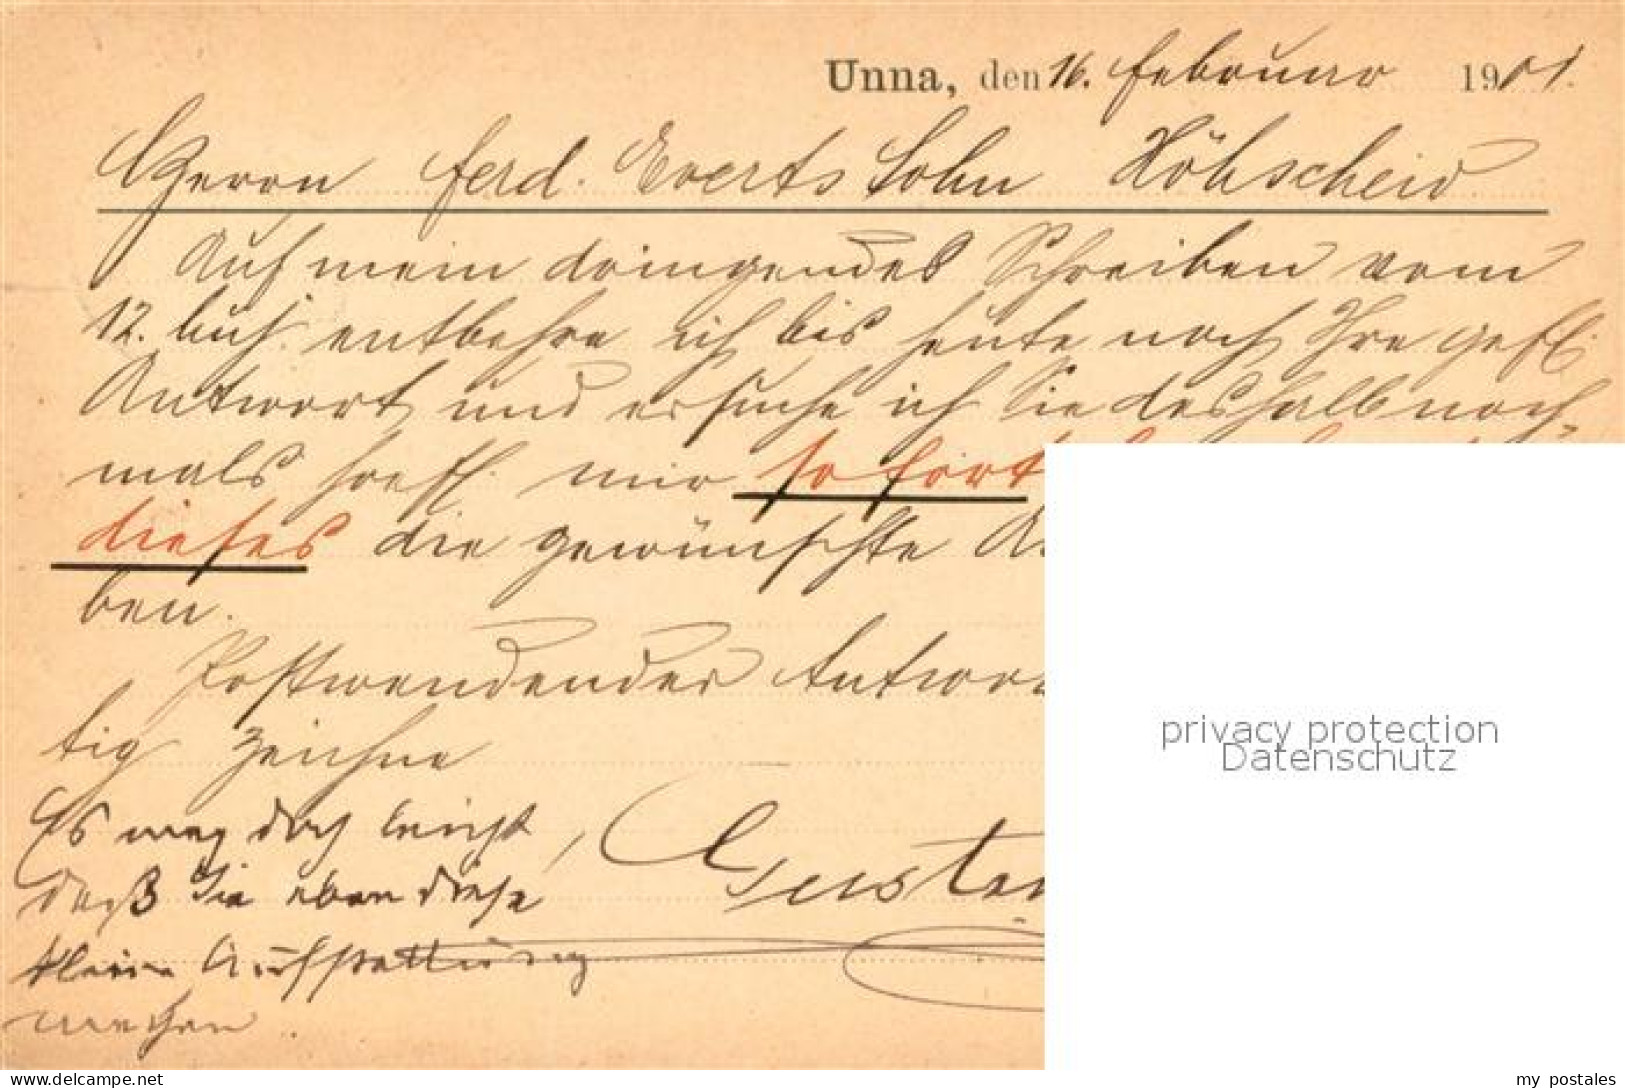 Unna, den 16. Februar 1901.
Herrn Ferd. Everts Sohn Höhscheid
Auf mein dringendes Schreiben vom
12. huj. entbehre ich bis heute noch Ihre gefl.
Antwort und ersuche ich Sie deshalb noch-
mals höfl. mir sofort
dieses die gewünschte
ben.
Postwendender Antwor
tig zeichne
Es mag doch leicht,
daß Sie eben diese
kleine
machen.
Gustav
privacy protection
Datenschutz
delcampe.net
my_postales